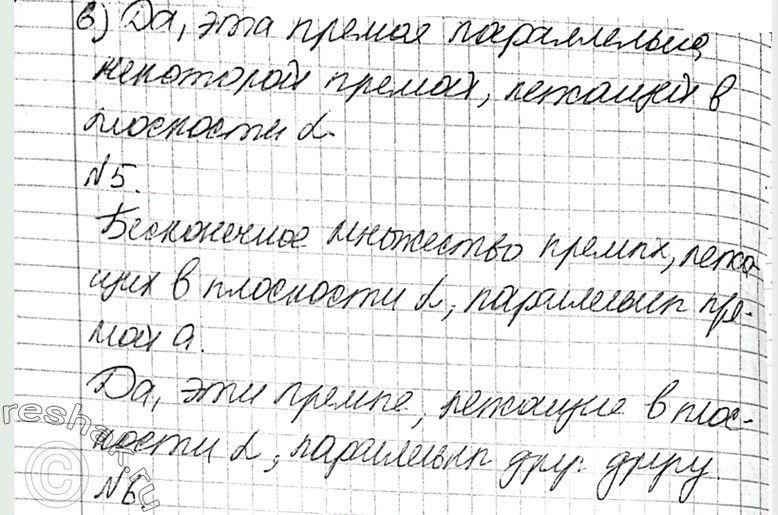 в) Да, эта прямая параллельна
некоторой прямой, лежащей в
плоскости α.
N5.
Бесконечное множество прямых, лежа-
щих в плоскости α, параллельных пря-
мой a.
Да, эти прямые, лежащие в плос-
кости α, параллельны друг другу.
N6
reshak.ru